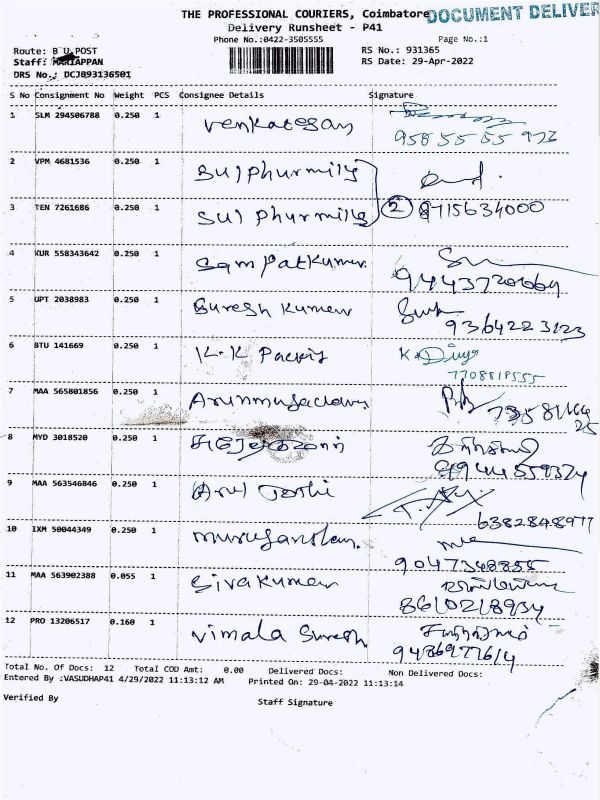 THE PROFESSIONAL COURIERS, Coimbatore DOCUMENT DELIVER
Delivery Runsheet - P41
Phone No.:0422-3505555 Page No.:1
Route: B U POST RS No.: 931365
Staff: MARIAPPAN RS Date: 29-Apr-2022
DRS No.: DCJ893136501
S No Consignment No Weight PCS Consignee Details Signature
1 SLM 294506788 0.250 1 Venkatesan
95855 55 972
2 VPM 4681536 0.250 1 Sulphurmills
3 TEN 7261686 0.250 1 Sulphurmills 2 8715634000
4 KUR 558343642 0.250 1 Sampatkumar
5 UPT 2038983 0.250 1 Suresh Kumar
9364223123
6 BTU 141669 0.250 1 K.K Packs K. Divya
7708819555
7 MAA 565801856 0.250 1
8 MYD 3018520 0.250 1
9 MAA 563546846 0.250 1 Arul Joshi
6382848977
10 IXM 50044349 0.250 1
9047348855
11 MAA 563902388 0.055 1 Sivakumar
8610218934
12 PRO 13206517 0.160 1 Vimala Suresh
9486977614
Total No. Of Docs: 12 Total COD Amt: 0.00 Delivered Docs: Non Delivered Docs:
Entered By :VASUDHAP41 4/29/2022 11:13:12 AM Printed On: 29-04-2022 11:13:14
Verified By Staff Signature